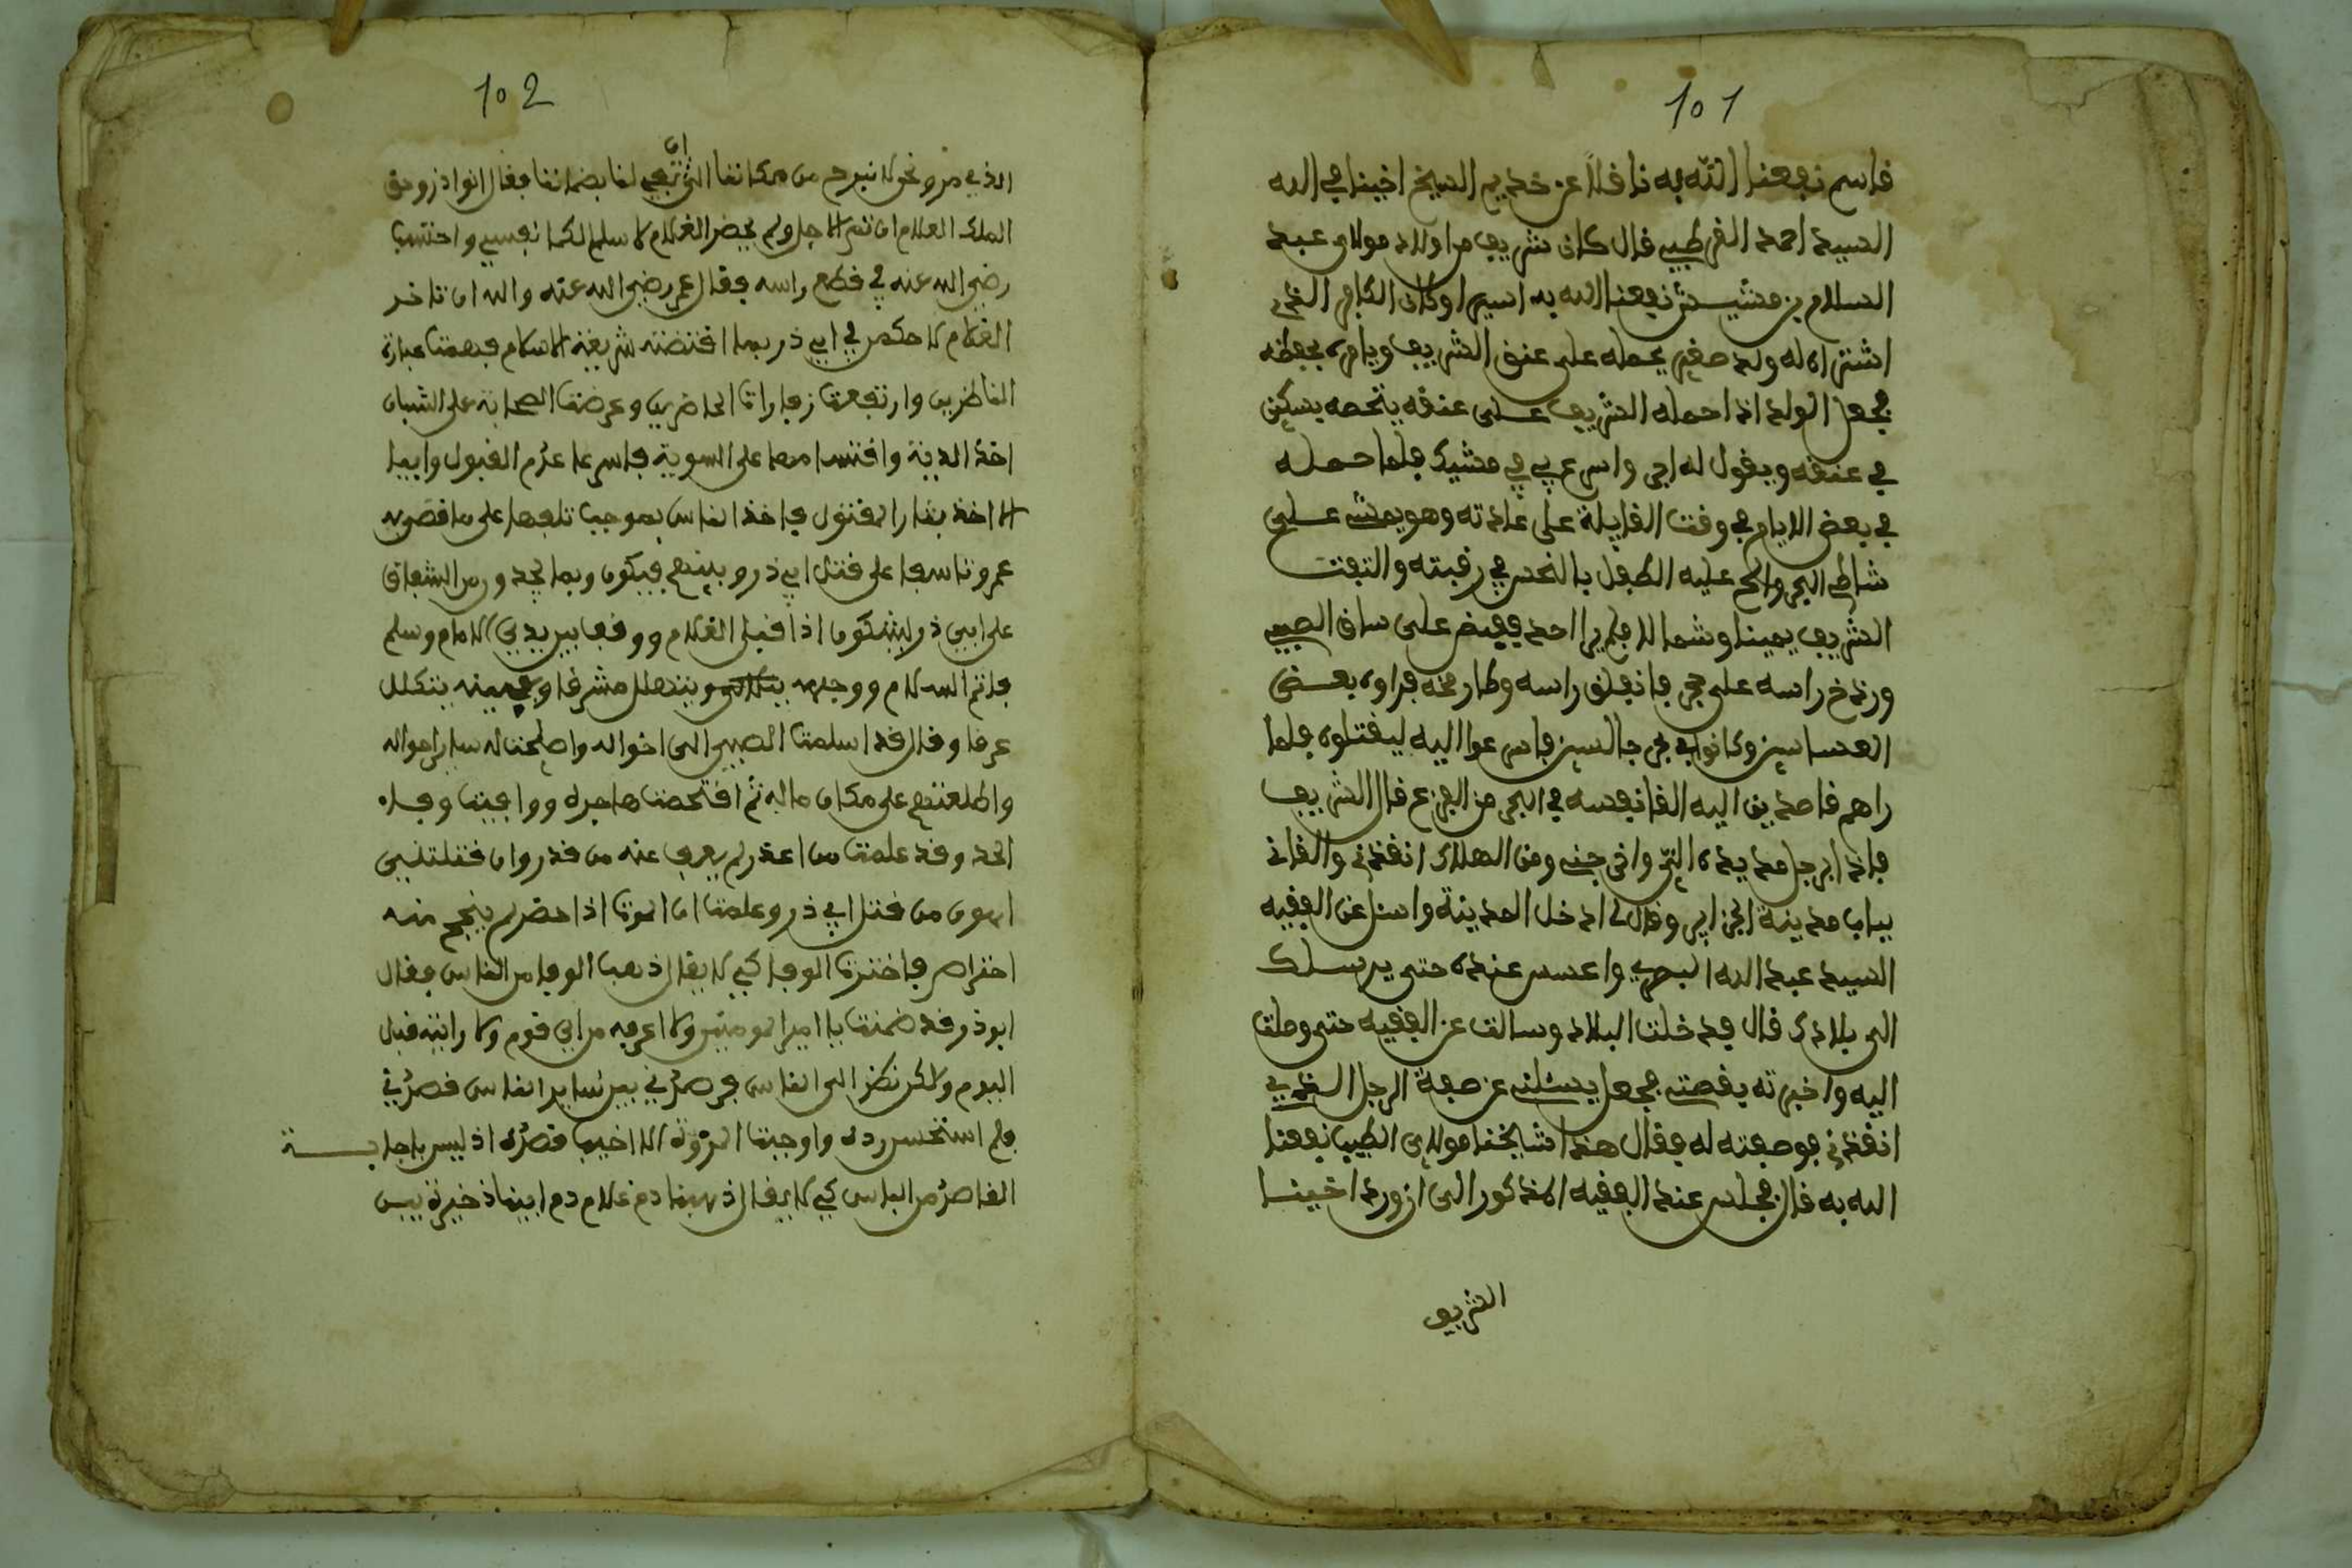 101
قاسم نفعنا الله به ناقلا عن خديم الشيخ اخينا في الله
السيد احمد القرطبي قال كان شريف من اولاد مولاي عبد
السلام بن مشيش نفعنا الله به اسيرا وكان الكافر الذي
اشتراه له ولد صغير يحمله على عنق الشريف ويامره بحفظه
فجعل الولد اذا حمله الشريف على عنقه ينخسه بسكين
في عنقه ويقول له اجر واسرع بي في مشيك فلما حمله
في بعض الايام في وقت القايلة على عادته وهو يمشي على
شاطئ البحر والح عليه الطفل بالنخس في رقبته والتفت
الشريف يمينا وشمالا فلم ير احد فقبض على ساق الصبي
ورذخ راسه على حجر فانفلق راسه وطار مخه فراوه بعض
العساسين وكانوا في برج جالسين فاسرعوا اليه ليقتلوه فلما
راهم قاصدين اليه القا نفسه في البحر من الفزع قال الشريف
فاذا برجل مد يده الي واخرجني ومن الهلاك انقذني والقاني
بباب مدينة الجزاير وقال لي ادخل المدينة واسئل عن الفقيه
السيد عبد الله البصري واعسس عنده حتى يرسلك
الى بلادك قال فدخلت البلاد وسالت عن الفقيه حتى وصلت
اليه واخبرته بقصتي فجعل يسئلني عن صفة الرجل الذي
انقذني فوصفته له فقال هذا شيخنا مولاي الطيب نفعنا
الله به قال فجلس عند الفقيه المذكور الى ان ورد اخينا
الشريف
102
الذي من ونحن لا نبرح من مكاننا الى ان تفي لنا بضماننا فقال ابو ذر وحق
الملك العلام ان تم الاجل ولم يحضر الغلام لاسلم لكما نفسي واحتسب
رضي الله عنه في قطع راسه فقال عمر رضي الله عنه والله ان تاخر
الغلام لاحكمن في ابي ذر بما اقتضته شريعة الاسلام فهمت عبارة
الناظرين وارتفعت زفارات الحاضرين وعرضت الصحابة على الشبان
اخذ الدية واقتسامها على السوية فاسرعا عدم القبول وابيا
الا اخذ بثار المقتول فاخذ الناس بموجب تلهفها على ما قصر به
عمر وتاسفا على قتل ابي ذر وبينهم فيبكون
على ابي ذر ليشتكون اذ اقبل الغلام ووقف بين يدي الامام وسلم
فاتم السلام ووجهه يتلالى ويتهلل مشرقا وجبينه يتكلل
عرقا وقال قد اسلمت الصبي الى اخواله واصلحت له ساير احواله
واطلعتهم على مكان ماله ثم اقتحمت هاجرة ووافيت وفاء
الحر وقد علمت من اعذر لم يعرف عنه من قدر وان قتلتني
اهون من قتل ابي ذر وعلمت ان الموت اذا حضر لم ينج منه
احتراص فاخترت الوفا كي لا يقال ذهب الوفا من الناس فقال
ابو ذر قد ضمنت يا امير المومنين ولا اعرفه من اي قوم ولا رايته قبل
اليوم ولاكن نظر الى الناس فحصرني بين ساير الناس قصدني
فلم استحسن رده واوجبت المروة الا اخيب قصده اذ ليس باجابة
القاصد من الباس كي لا يقال ذهبنا دم غلام دم ابينا ذخيرة بيس